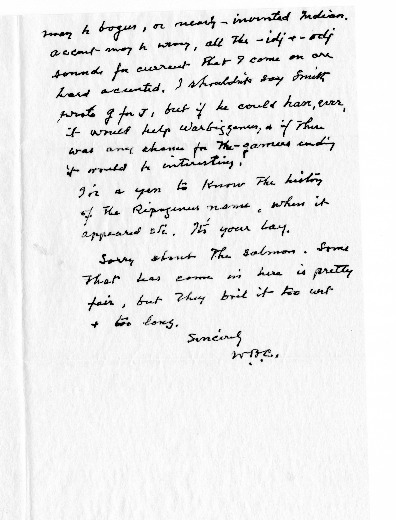 may be bogus, or nearly-invented Indian.
accent may be wrong, all the -idj & -odj
sounds for current that I come on are
hard accented. I shouldn't say Smith
wrote g for J, but if he could have, ever,
it would help Warbigganus, & if there
was any chance for the -gamus ending
it would be interesting!
I've a yen to know the history
of the Ripogenus name, when it
appeared etc. It's your lay.
Sorry about the salmon. Some
that has come in here is pretty
fair, but they boil it too wet
& too long.
Sincerely
W.B.C.